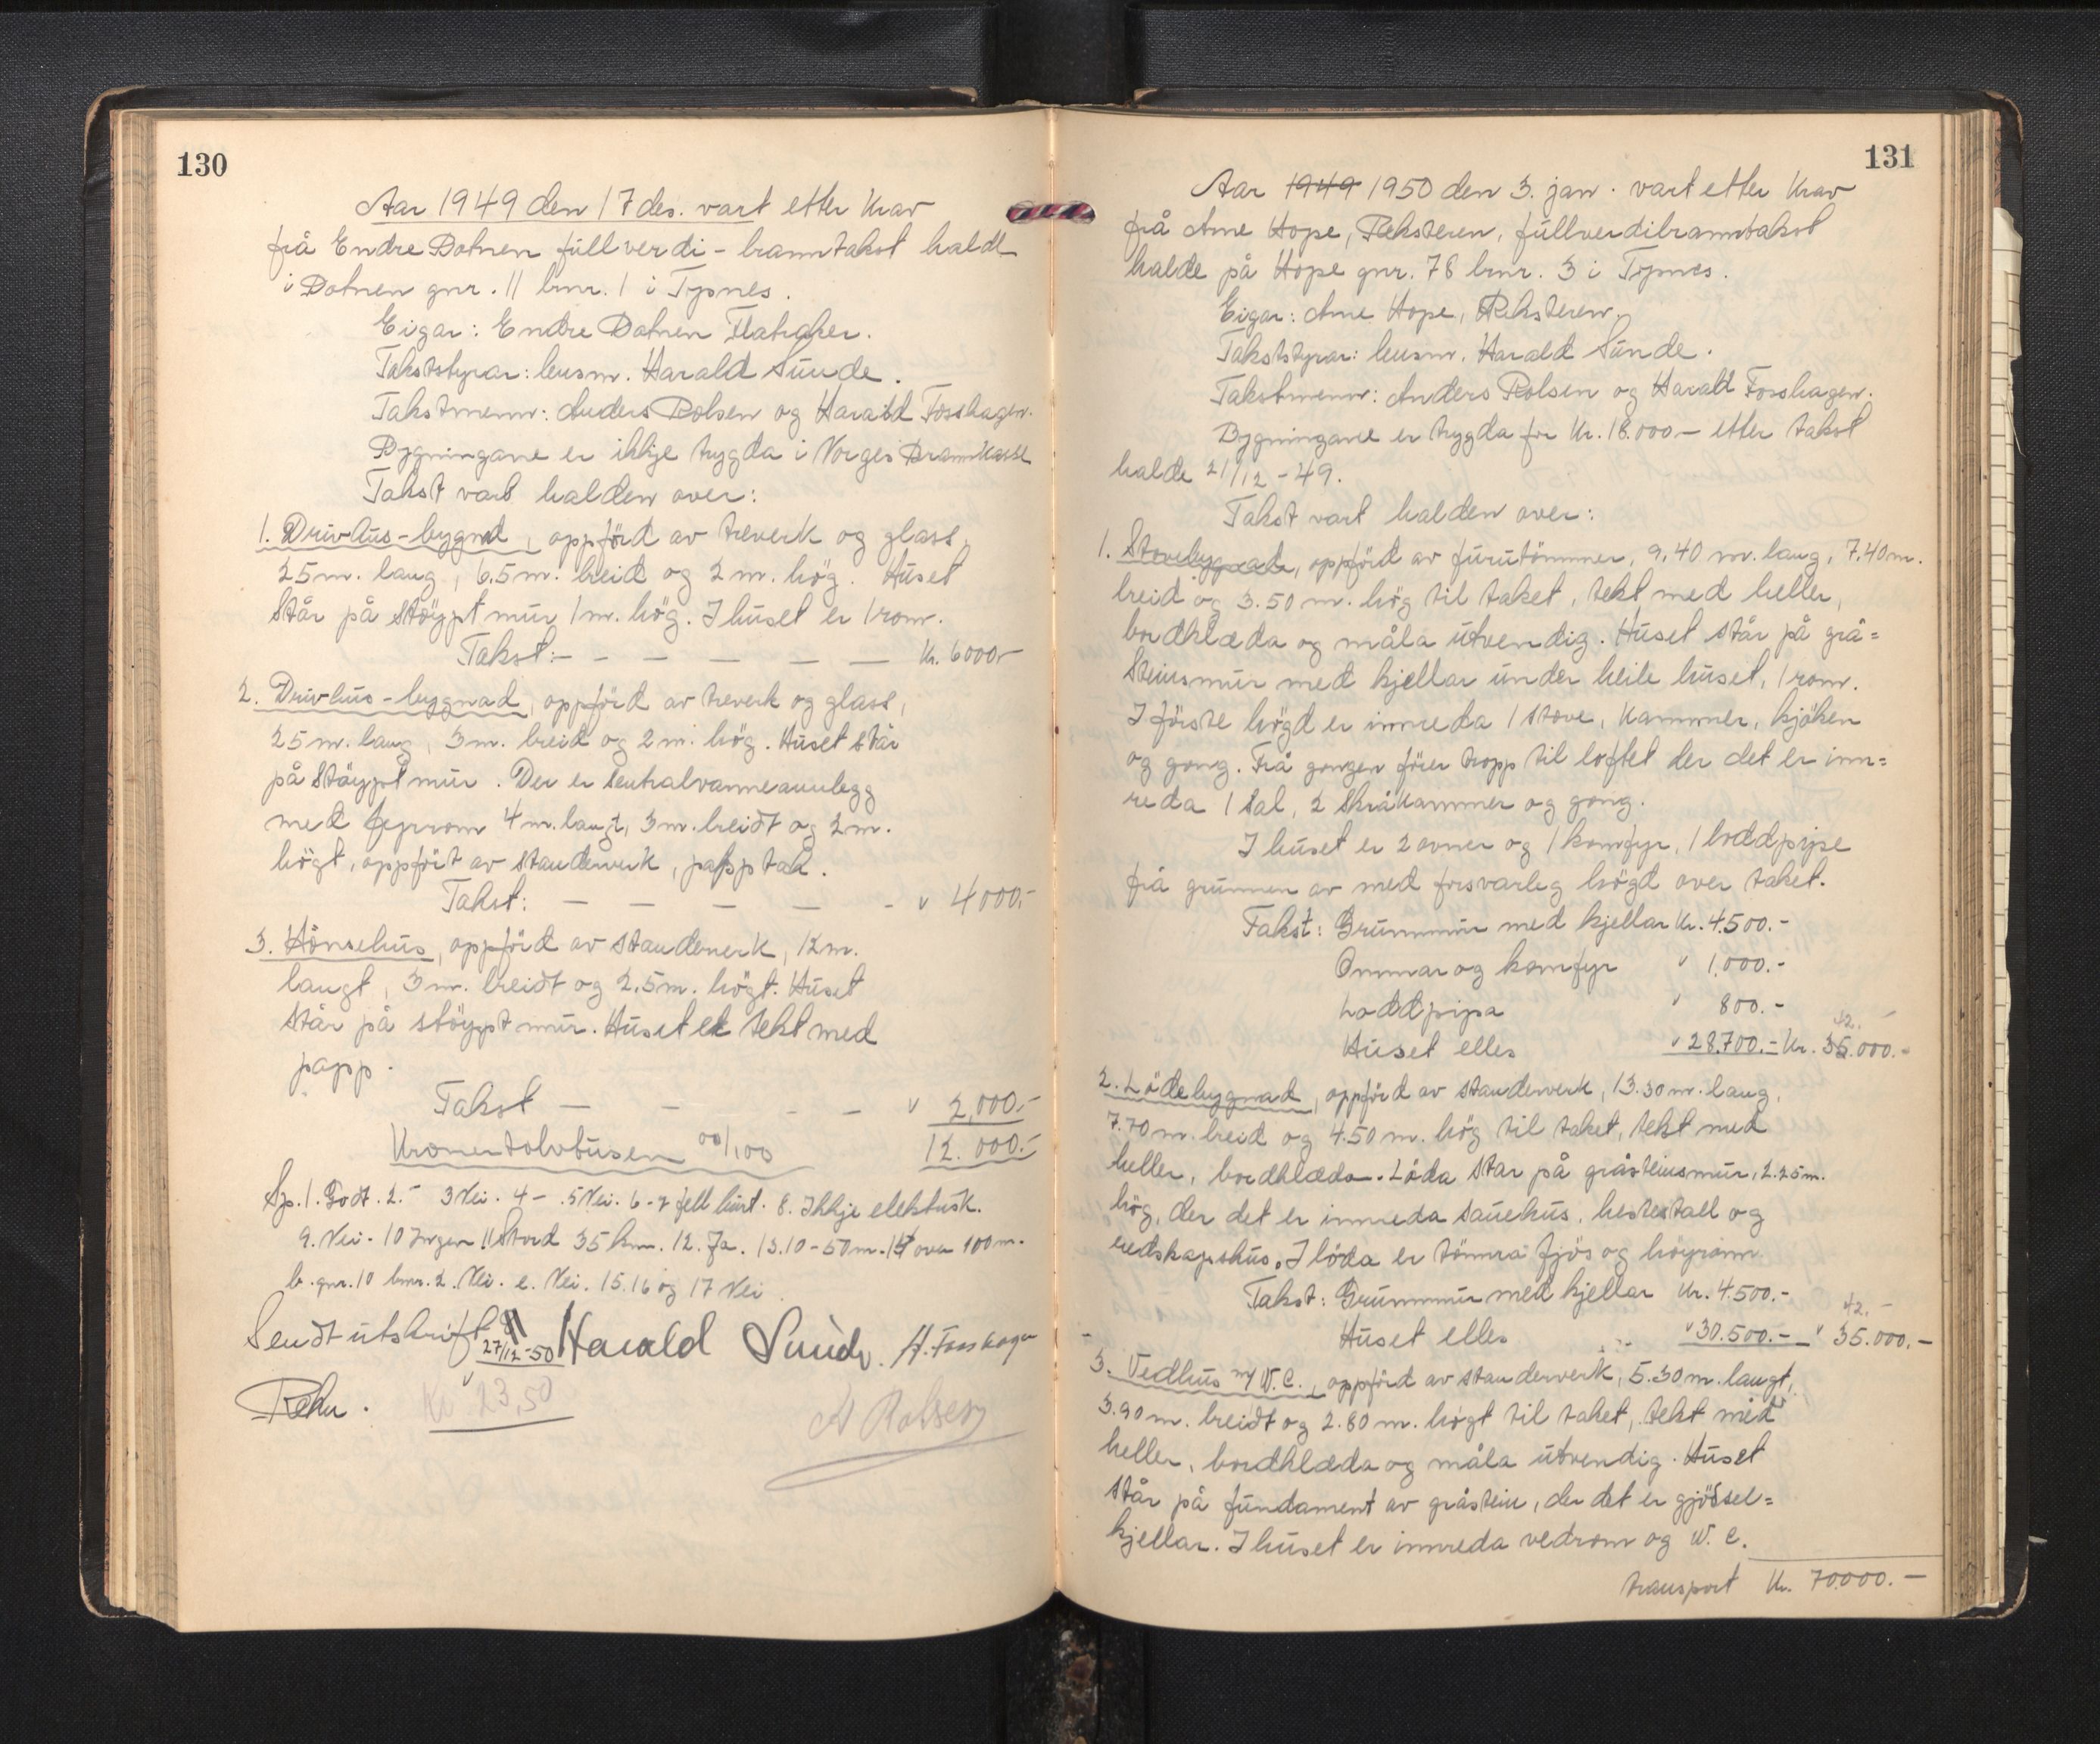 130
Aar 1949 den 17 des. vart etter Krav
frå Endre Dotnen fullverdi-branntakst halde
i Dotnen gnr. 11 bnr. 1 i Tysnes.
Eigar: Endre Dotnen Flatråker.
Takststyrar: lensm. Harald Sunde.
Takstmenn: Anders Rolsen og Harald Fosshagen.
Bygningane er ikkje trygda i Norges Brannkasse
Takst vart halden over:
1. Drivhus-bygnad, oppförd av treverk og glass,
25 m. lang, 6.5 m. breid og 2 m. hög. Huset
står på stöypt mur 1 m. hög. I huset er 1 rom.
Takst: — — — — — — Kr. 6000.-
2. Drivhus-bygnad, oppförd av treverk og glass,
25 m. lang, 3 m. breid og 2 m. hög. Huset står
på stöypt mur. Der er sentralvarmeanlegg
med fyrrom 4 m. langt, 3 m. breidt og 2 m.
högt, oppfört av standerverk, papp tak.
Takst: — — — — - " 4000.-
3. Hönsehus, oppförd av standerverk, 12 m.
langt, 3 m. breidt og 2.5 m. högt. Huset
står på stöypt mur. Huset er tekt med
papp.
Takst — — - - — " 2,000.-
Kroner tolvtusen 00/100 12.000.-
Sp. 1. Godt. 2.- 3 Nei. 4 - . 5 Nei. 6 - 7 fell burt. 8. Ikkje elektrisk.
9. Nei. 10 Ingen 11 Stord 35 km. 12. Ja. 13. 10-50 m. 14 over 100 m.
b. gnr. 10 bnr. 2. Nei. c. Nei. 15. 16 og 17 Nei.
Sendt utskrift 27/12-50 Harald Sunde. H. Fosshagen
Rekn. Kr 23,50
A Rolsen
131
Aar 1949 1950 den 3. jan. vart etter Krav
frå Arne Hope, Reksteren, fullverdibranntakst
halde på Hope gnr. 78 bnr. 3 i Tysnes.
Eigar: Arne Hope, Reksteren.
Takststyrar: lensm. Harald Sunde.
Takstmenn: Anders Rolsen og Harald Fosshagen.
Bygningane er trygda for Kr. 18.000 — etter takst
halde 21/12 - 49.
Takst vart halden over:
1. Stovebygnad, oppförd av furutömmer, 9,40 m. lang, 7.40 m.
breid og 3.50 m. hög til taket, tekt med heller,
bordklæda og måla utvendig. Huset står på grå=
steinsmur med kjellar under heile huset, 1 rom.
I förste högd er innreda 1 stove, kammer, kjöken
og gong. Frå gongen förer tropp til loftet der det er inn=
reda 1 sal, 2 skråkammer og gong.
I huset er 2 ovner og 1 komfyr, 1 loddpipe
frå grunnen av med forsvarleg högd over taket.
Takst: Grunnmur med kjellar Kr. 4.500.-
Ommar og komfyr " 1,000.-
Loddpipa " 800.-
42.-
Huset elles " 28.700.- Kr. 35.000.-
2. Lödebygnad, oppförd av standerverk, 13.30 m. lang,
7.70 m. breid og 4.50 m. hög til taket, tekt med
heller, bordklæda. Löda står på gråsteinsmur, 2.25 m.
hög, der det er innreda sauehus, hestestall og
redskapshus. I löda er tömra fjös og höyrom.
Takst: Grunnmur med kjellar Kr. 4.500.-
42.-
Huset elles " 30.500.- " 35.000.-
3. Vedhus m/ W.C., oppförd av standerverk, 5.30 m. langt,
3.90 m. breidt og 2.80 m. högt til taket, tekt med
heller, bordklæda og måla utvendig. Huset
står på fundament av gråstein, der det er gjödsel=
kjellar. I huset er innreda vedrom og W.C.
transport Kr. 70.000.-